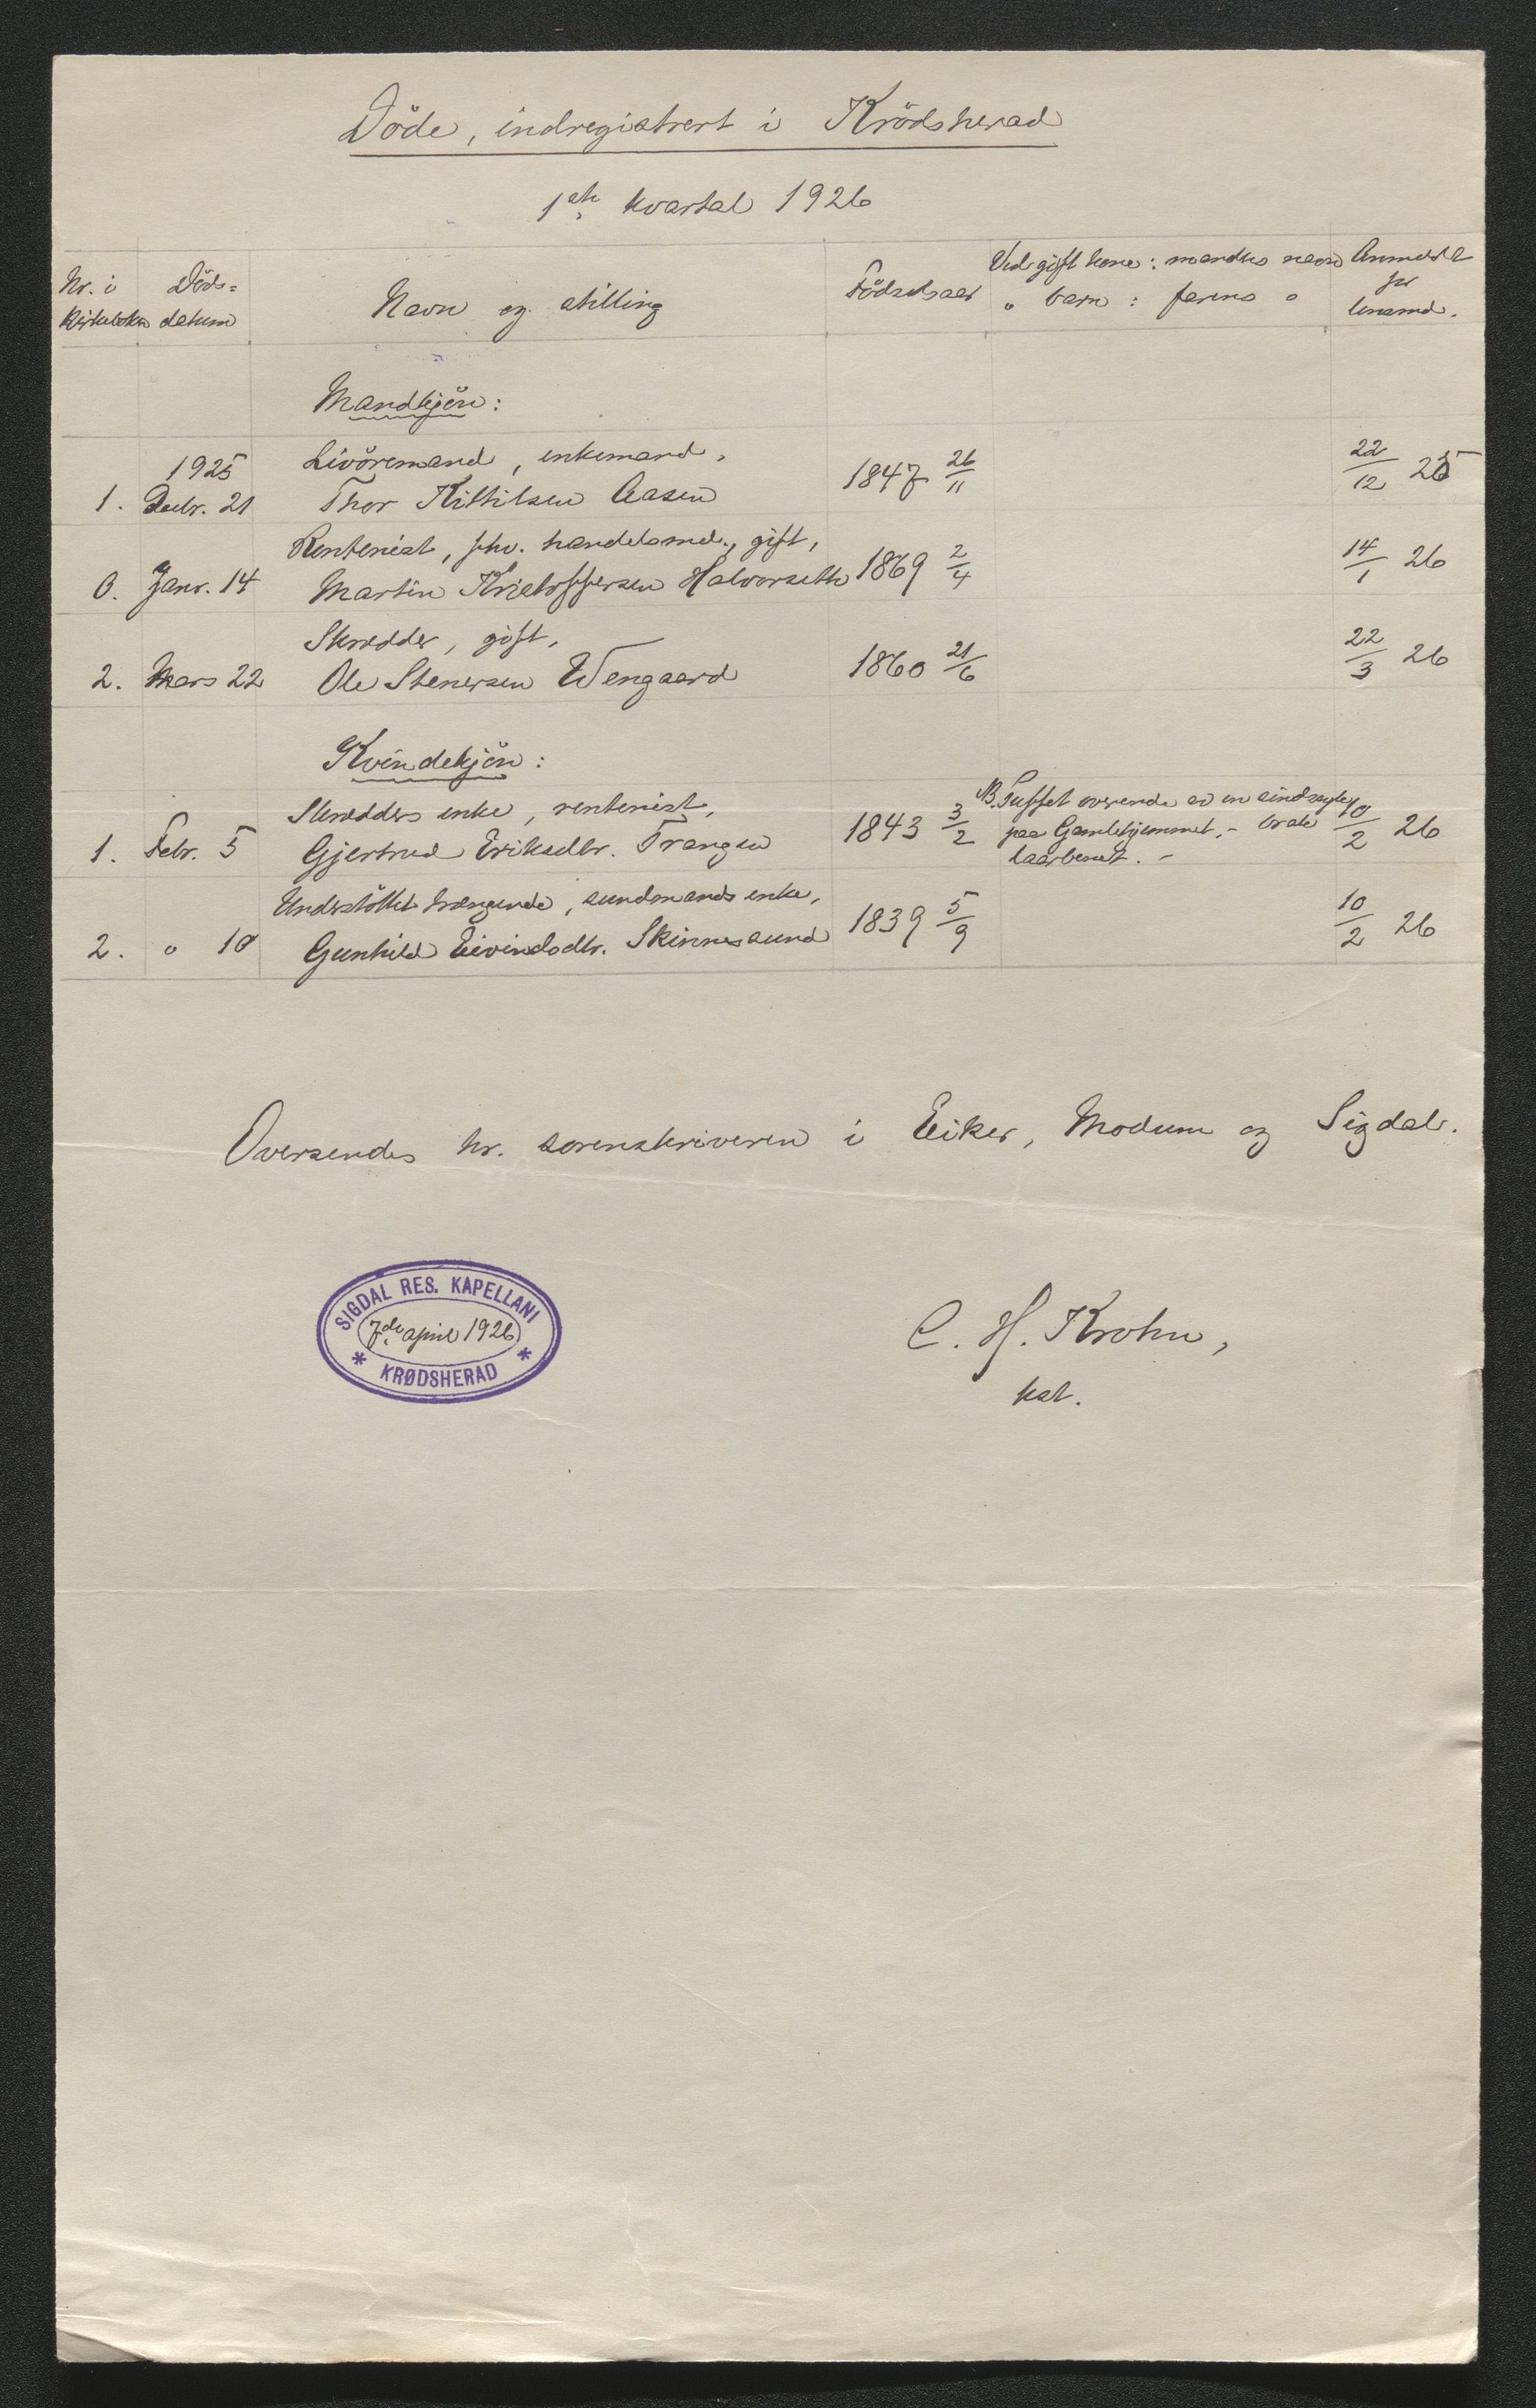 Döde, indregistrert i Krödsherad
1ste kvartal 1926
Nr. i kirkeboken
Döds= datum
Navn og stilling
Födselsaar
Ved gift kone: mandens navn
" barn: farens "
Anmeldt for lensmd.
Mandkjön:
1925
Livöremand, enkemand,
1. Decbr. 21 Thor Kittilsen Aasen 1847 26/11 22/12 25
Rentenist, fhv. handelsmd., gift,
0. Janr. 14 Martin Kristoffersen Halvorseth 1869 2/4 14/1 26
Skrædder, gift,
2. Mars 22 Ole Stenersen Wengaard 1860 21/6 22/3 26
Kvindekjön:
Skrædders enke, rentenist,
1. Febr. 5 Gjertrud Eriksdtr. Trangen 1843 3/2 NB. Puffet overende av en sindssyk
paa Gamlehjemmet. - brak
laarbenet. - 10/2 26
Understöttet trængende, sundmands enke,
2. " 10 Gunhild Eivindsdtr. Skinnessund 1839 5/9 10/2 26
Oversendes hr. sorenskriveren i Eiker, Modum og Sigdal.
SIGDAL RES. KAPELLANI
7de april 1926
* KRØDSHERAD *
C. H. Krohn,
kst.